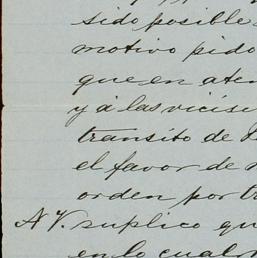 sido posible
motivo pido
que en aten
y á las vicisi
transito de
el favor de
orden por tr
A V. suplico qu
en lo cual